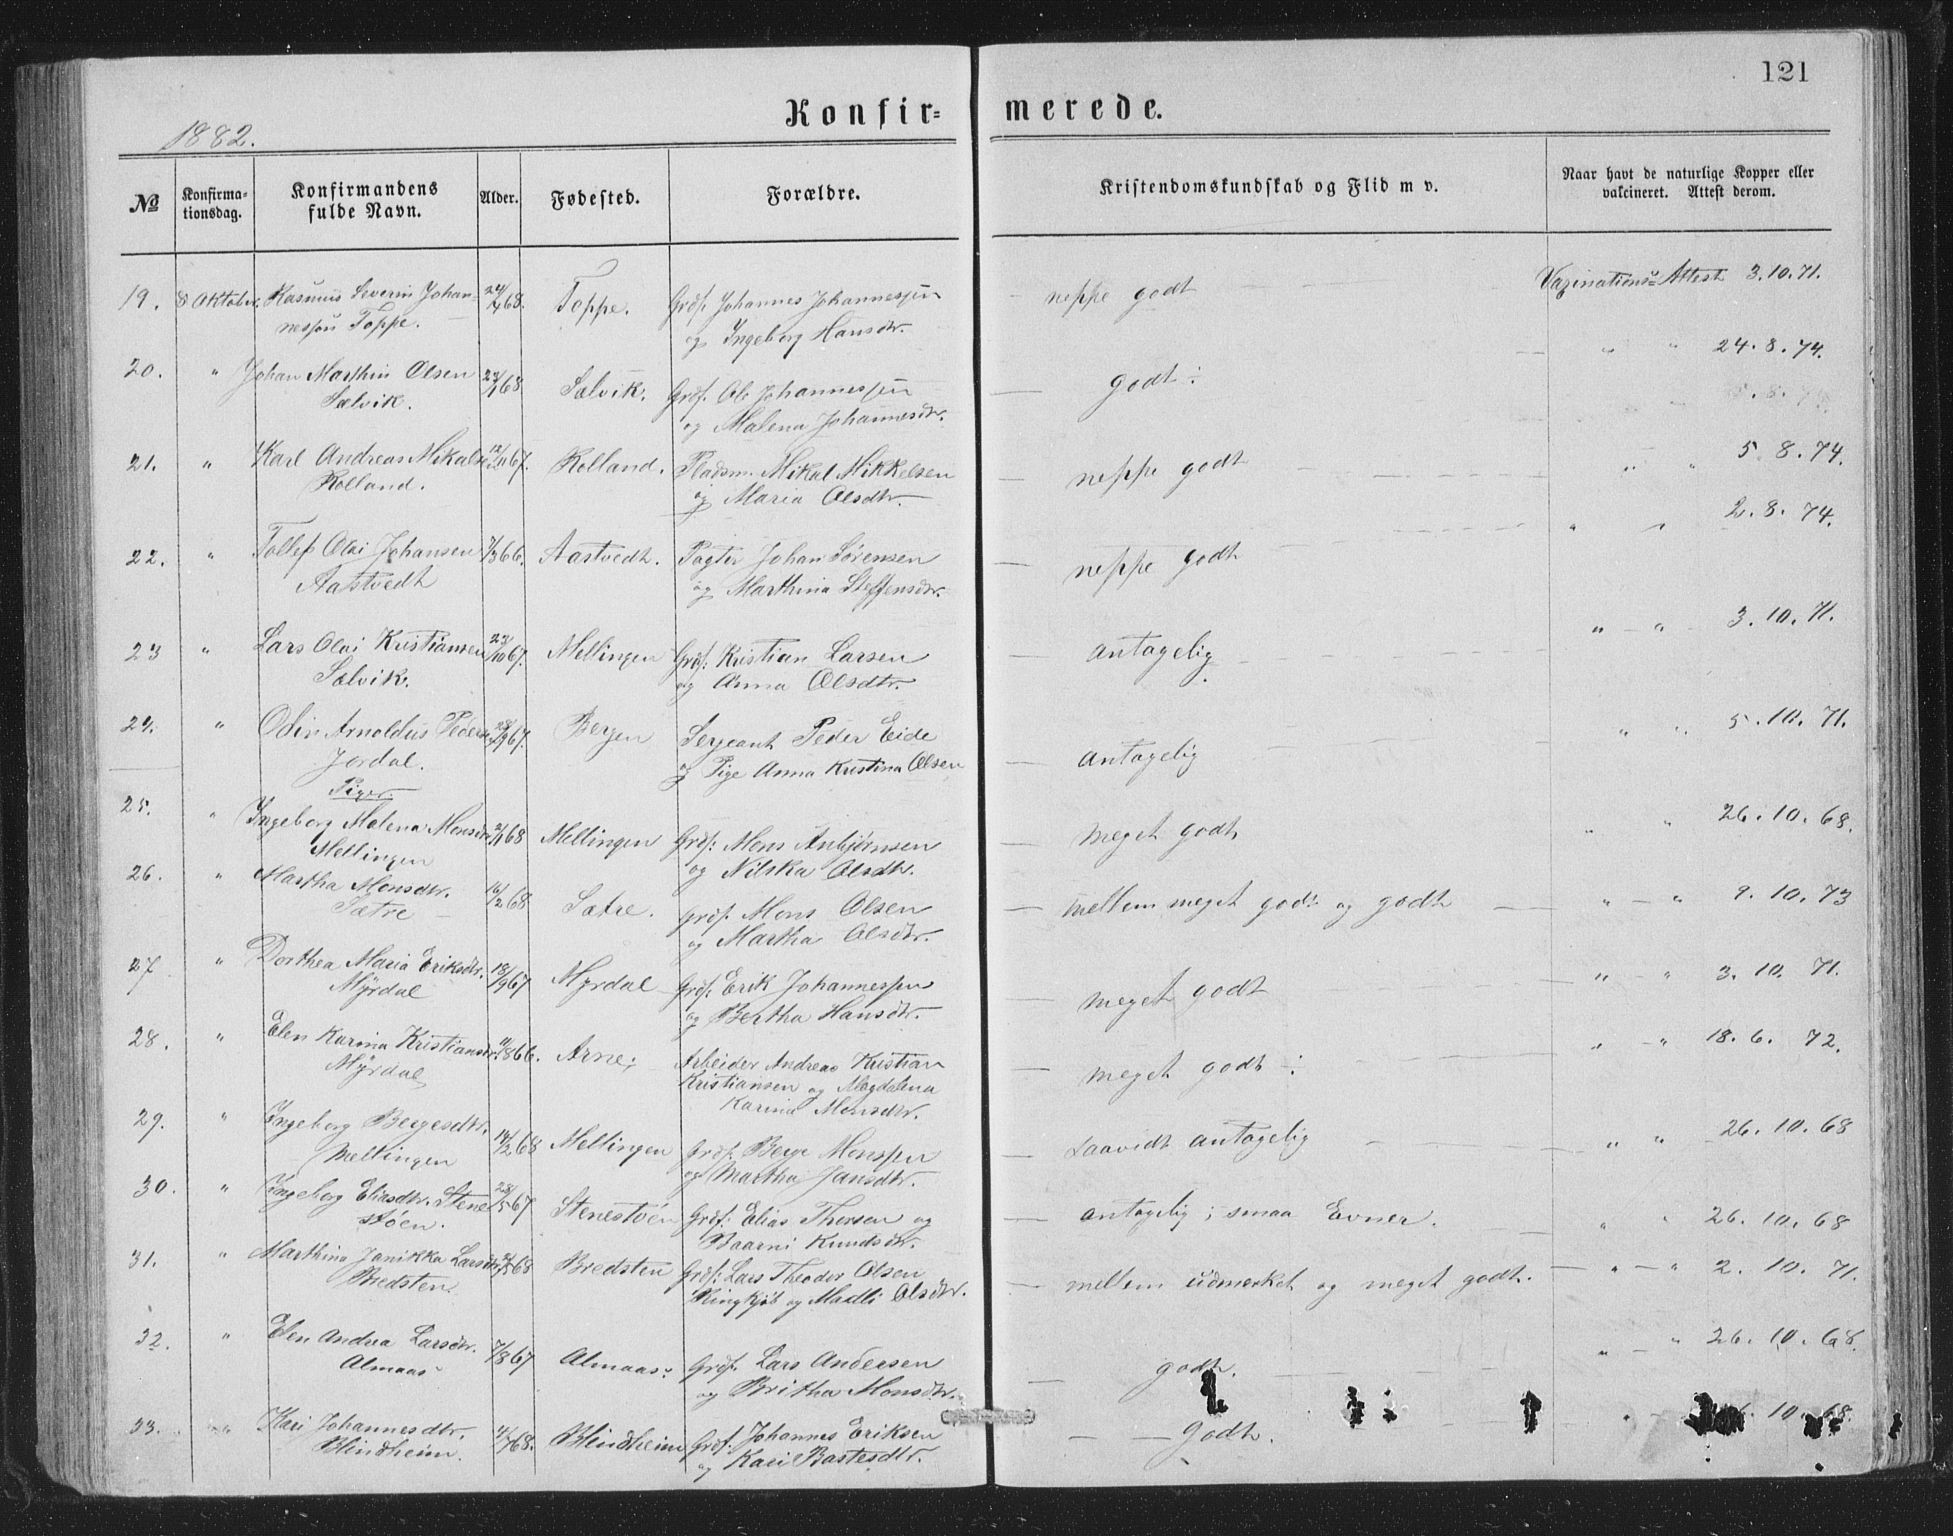 121
Konfir- merede.
1882.
№ Konfirma-tionsdag. Konfirmandens fulde Navn. Alder. Fødested. Forældre. Kristendomskundskab og Flid m v. Naar havt de naturlige Kopper eller vakcineret. Attest derom.
19. 8 Oktober. Rasmus Severin Johan- 68. Toppe. Grdf. Johannes Johannessen neppe godt Vaxinations-Attest 3.10.71.
nessen Toppe. og Ingeborg Hansdtr.
20. " Johan Marthin Olsen 68 Sælvik. Grdf. Ole Johannessen godt ÷ " " 24.8.74.
Sælvik. og Malena Johannesdtr.
21. " Karl Andreas Mikalse 12/11 67. Rolland. Pladsm. Mikal Mikkelsen neppe godt " " 5.8.74.
Rolland. og Maria Olsdtr.
22. " Tollef Olai Johansen 1/3 66. Aastvedt. Pagter Johan Sørensen neppe godt " " 2.8.74.
Aastvedt og Marthina Steffensdtr.
23 " Lars Olai Kristiansen 23/10 67. Mellingen Grdf: Kristian Larsen antagelig " " 3.10.71.
Sælvik. og Anna Olsdtr.
24. " Odin Arnoldus Peders 28/9 67. Bergen Sergeant Peder Eide antagelig " " 5.10.71.
Jordal. og Pige Anna Kristina Olsen
Piger.
25. " Ingeborg Malena Monsdtr 68 Mellingen Grdf: Mons Anbjørnsen meget godt " " 26.10.68.
Mellingen og Nilska Olsdtr.
26. " Martha Monsdtr. 16/2 68 Sætre. Grdf. Mons Olsen mellem meget godt og godt " " 9.10.73
Sætre og Martha Olsdtr.
27 " Dorthea Maria Eriksdtr. 18/9 67 Myrdal Grdf: Erik Johannessen meget godt " " 3.10.71.
Myrdal og Bertha Hansdtr.
28. " Elen Karina Kristiansdtr. 8 66. Arne; Arbeider Andreas Kristian meget godt ÷ " " 18.6.72.
Myrdal Kristiansen og Magdalena
Karina Monsdtr.
29. " Ingeborg Bergesdtr. 14/2 68 Mellingen Grdf. Berge Monssen saavidt antagelig " " 26.10.68
Mellingen og Martha Jansdtr.
30. " Ingeborg Eliasdtr. Stene 23/5 67 Stenestøen Grdf: Elias Thorsen og antagelig; smaa Evner. " " 26.10.68
støen. Baarni Knudsdtr.
31. " Marthina Janikka Larsdtr. 68 Bredsten Grdf: Lars Theodor Olsen mellem udmærket og meget godt. " " 2.10.71.
Bredsten. Ringkjøb og Madli Olsdtr.
32. " Elen Andrea Larsdtr. 7/8 67 Almaas. Grdf. Lars Andersen godt. " " 26.10.68.
Almaas og Britha Monsdtr.
33. " Kari Johannesdtr. 68. Blindheim Grdf. Johannes Eriksen Godt. " 10.68.
Blindheim. og Kari Bastesdtr.